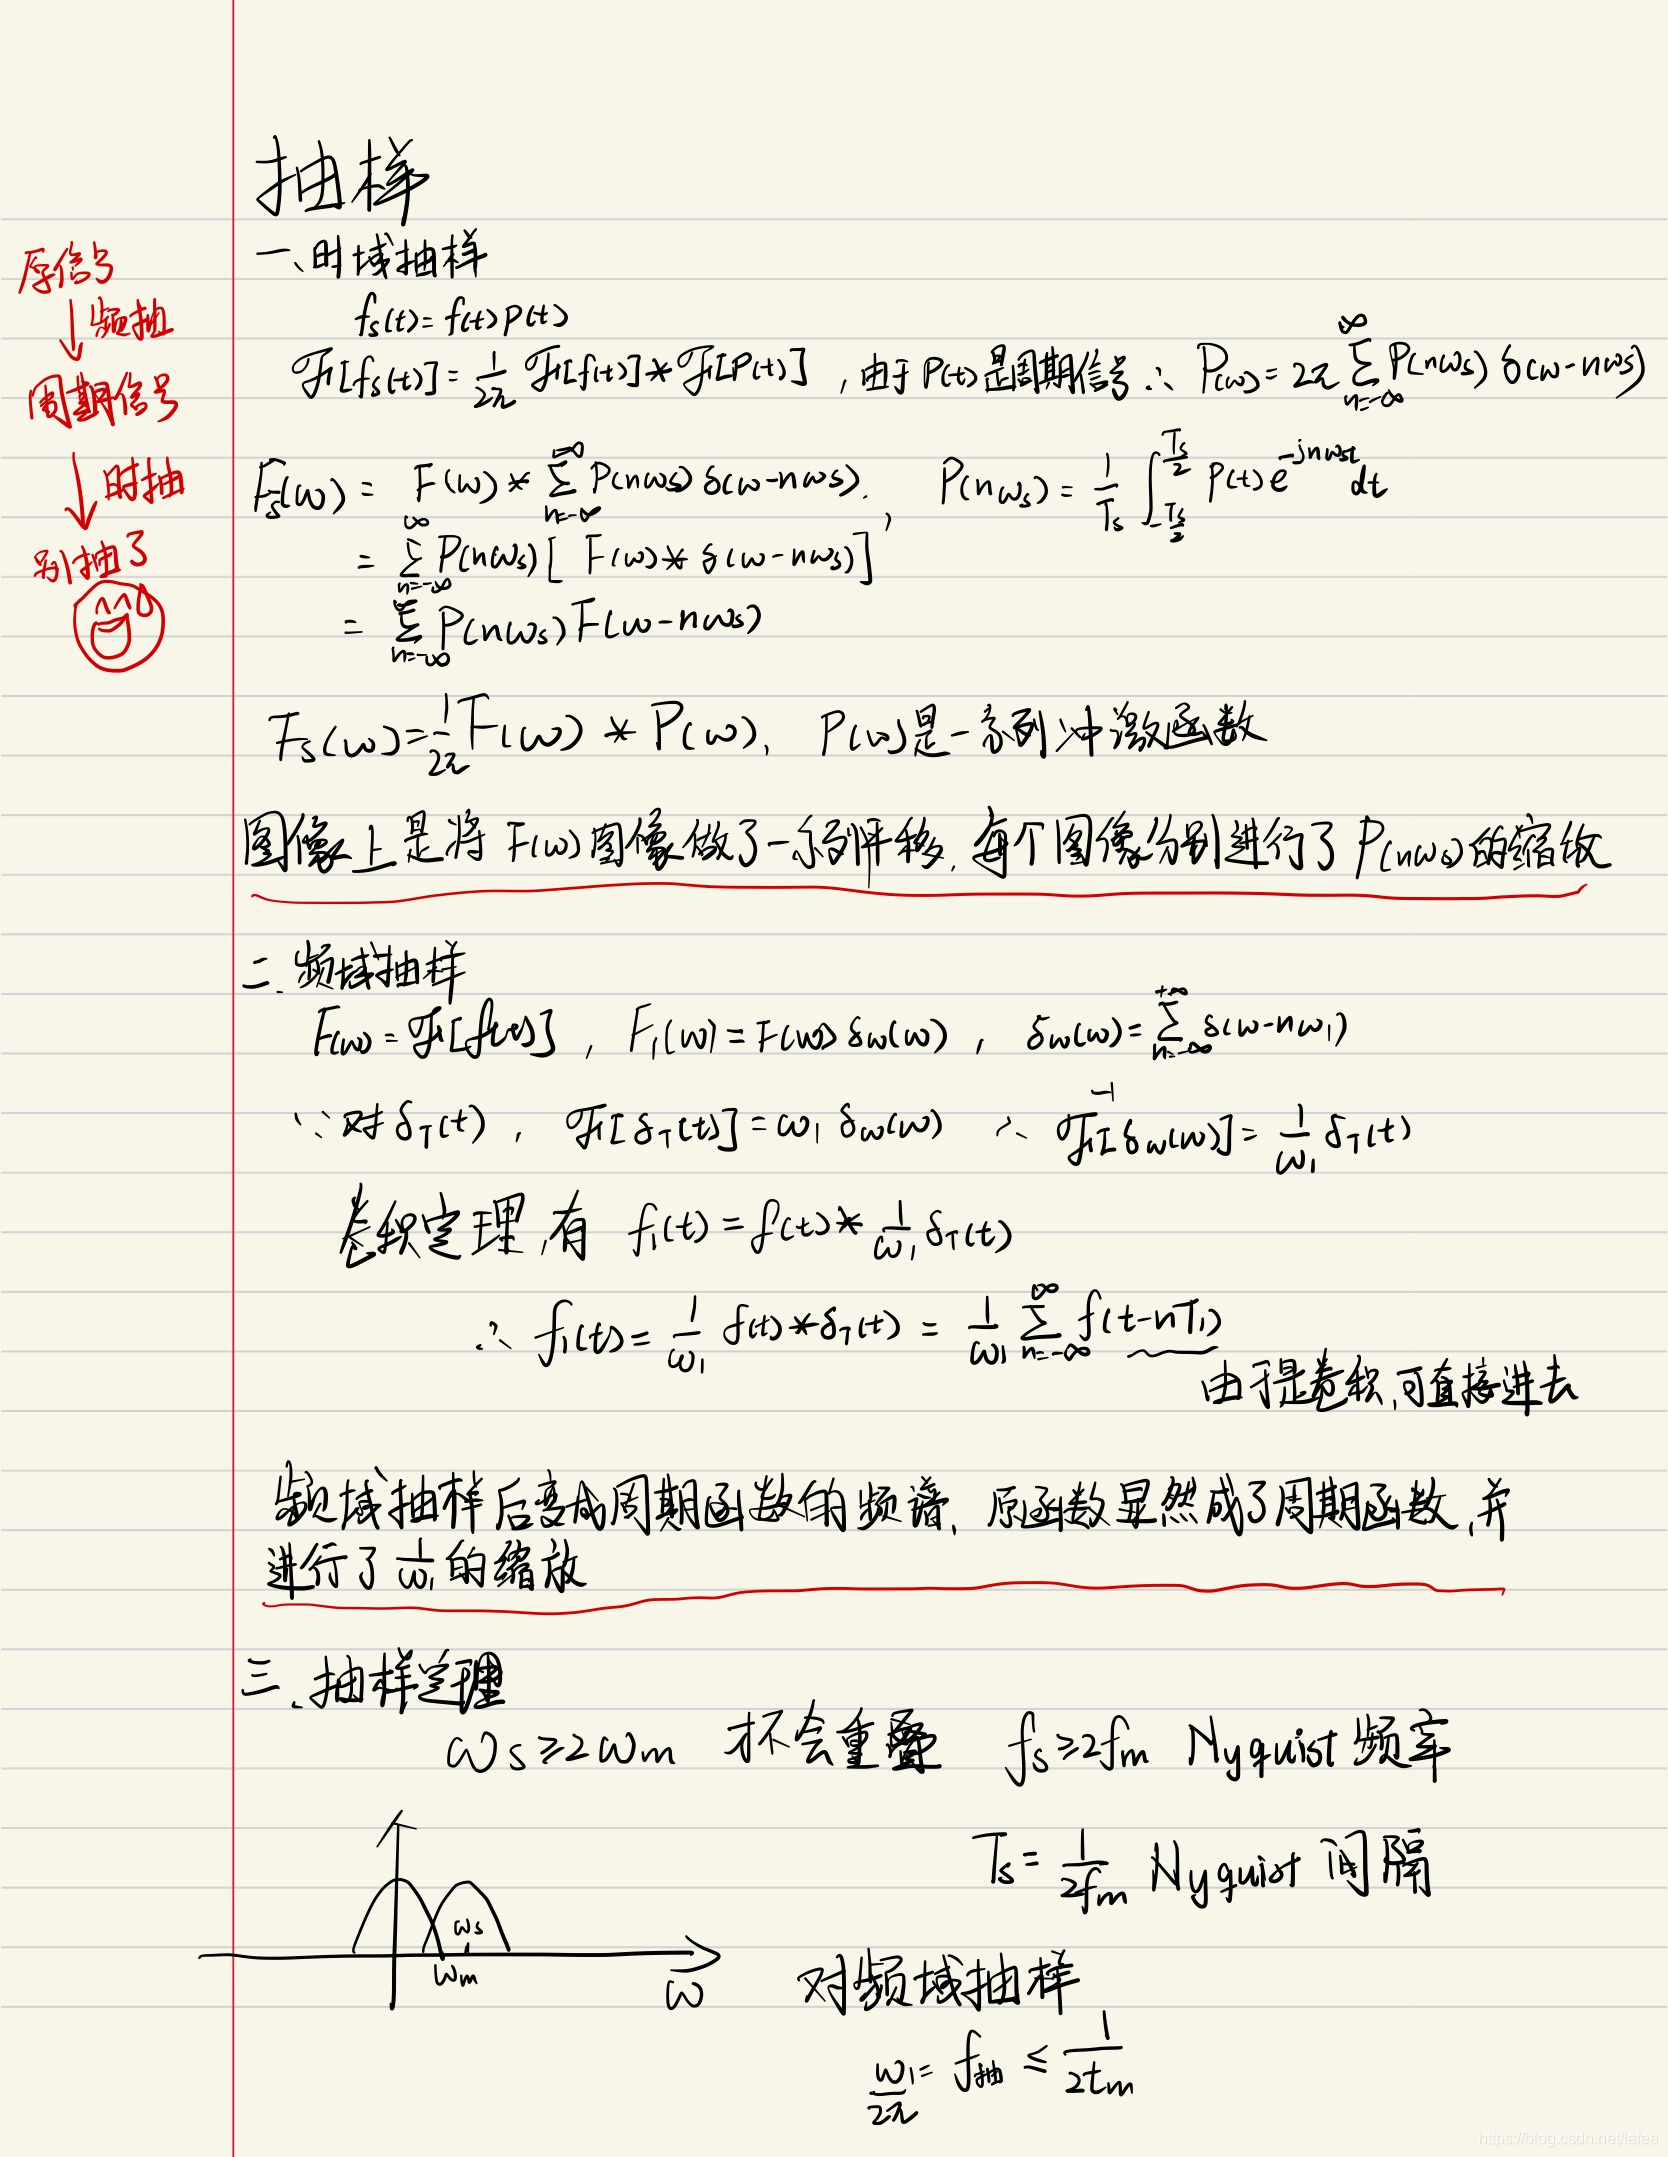 抽样
一、时域抽样
fs(t)=f(t)P(t)
ℱ[fs(t)]=1/2π ℱ[f(t)]*ℱ[P(t)],由于P(t)是周期信号∴ P(ω)=2π∑_{n=-∞}^{∞}P(nωs)δ(ω-nωs)
Fs(ω)= F(ω)*∑_{n=-∞}^{∞}P(nωs)δ(ω-nωs), P(nωs)=1/Ts ∫_{-Ts/2}^{Ts/2}P(t)e^{-jnωst}dt
=∑_{n=-∞}^{∞}P(nωs)[F(ω)*δ(ω-nωs)]
=∑_{n=-∞}^{∞}P(nωs)F(ω-nωs)
Fs(ω)=1/2π F(ω)*P(ω), P(ω)是一系列冲激函数
图像上是将F(ω)图像做了一系列平移,每个图像分别进行了P(nωs)的缩放
原信号
↓频抽
周期信号
↓时抽
别抽了
二、频域抽样
F(ω)=ℱ[f(t)], F₁(ω)=F(ω)δω(ω), δω(ω)=∑_{n=-∞}^{+∞}δ(ω-nω₁)
∵对δT(t), ℱ[δT(t)]=ω₁δω(ω) ∴ℱ⁻¹[δω(ω)]=1/ω₁ δT(t)
卷积定理,有 f₁(t)=f(t)*1/ω₁ δT(t)
∴ f₁(t)=1/ω₁ f(t)*δT(t)=1/ω₁ ∑_{n=-∞}^{∞}f(t-nT₁)
由于是卷积,可直接进去
频域抽样后变成周期函数的频谱,原函数显然成了周期函数,并
进行了1/ω₁的缩放
三、抽样定理
ωs≥2ωm 才不会重叠 fs≥2fm Nyquist频率
Ts=1/2fm Nyquist间隔
ωs
ωm
ω
对频域抽样
ω₁/2π=f抽≤1/2tm
https://blog.csdn.net/lafea